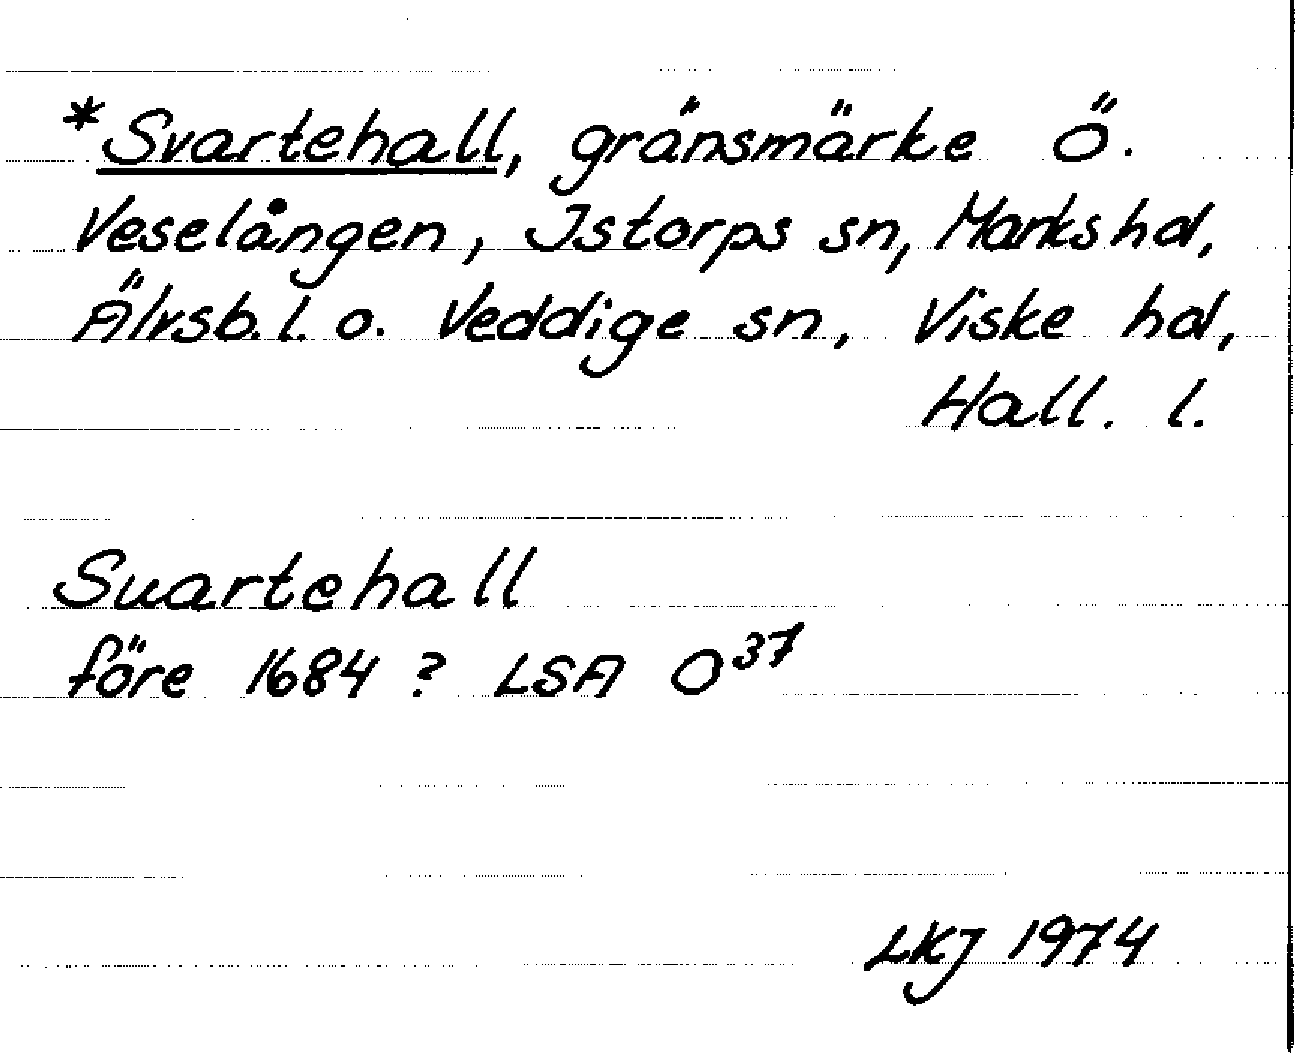 *Svartehall, gränsmärke Ö.
Veselången, Istorps sn, Marks hd,
Älvsb. l. o. Veddige sn, Viske hd,
Hall. l.
Suartehall
före 1684? LSA O³⁷
LKJ 1974